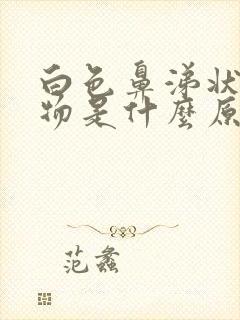 白色鼻涕状
物是什麼原
范蠡